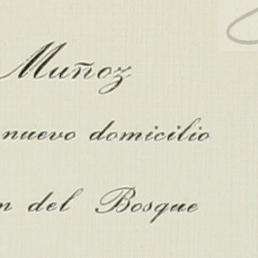 Muñoz
nuevo domicilio
n del Bosque